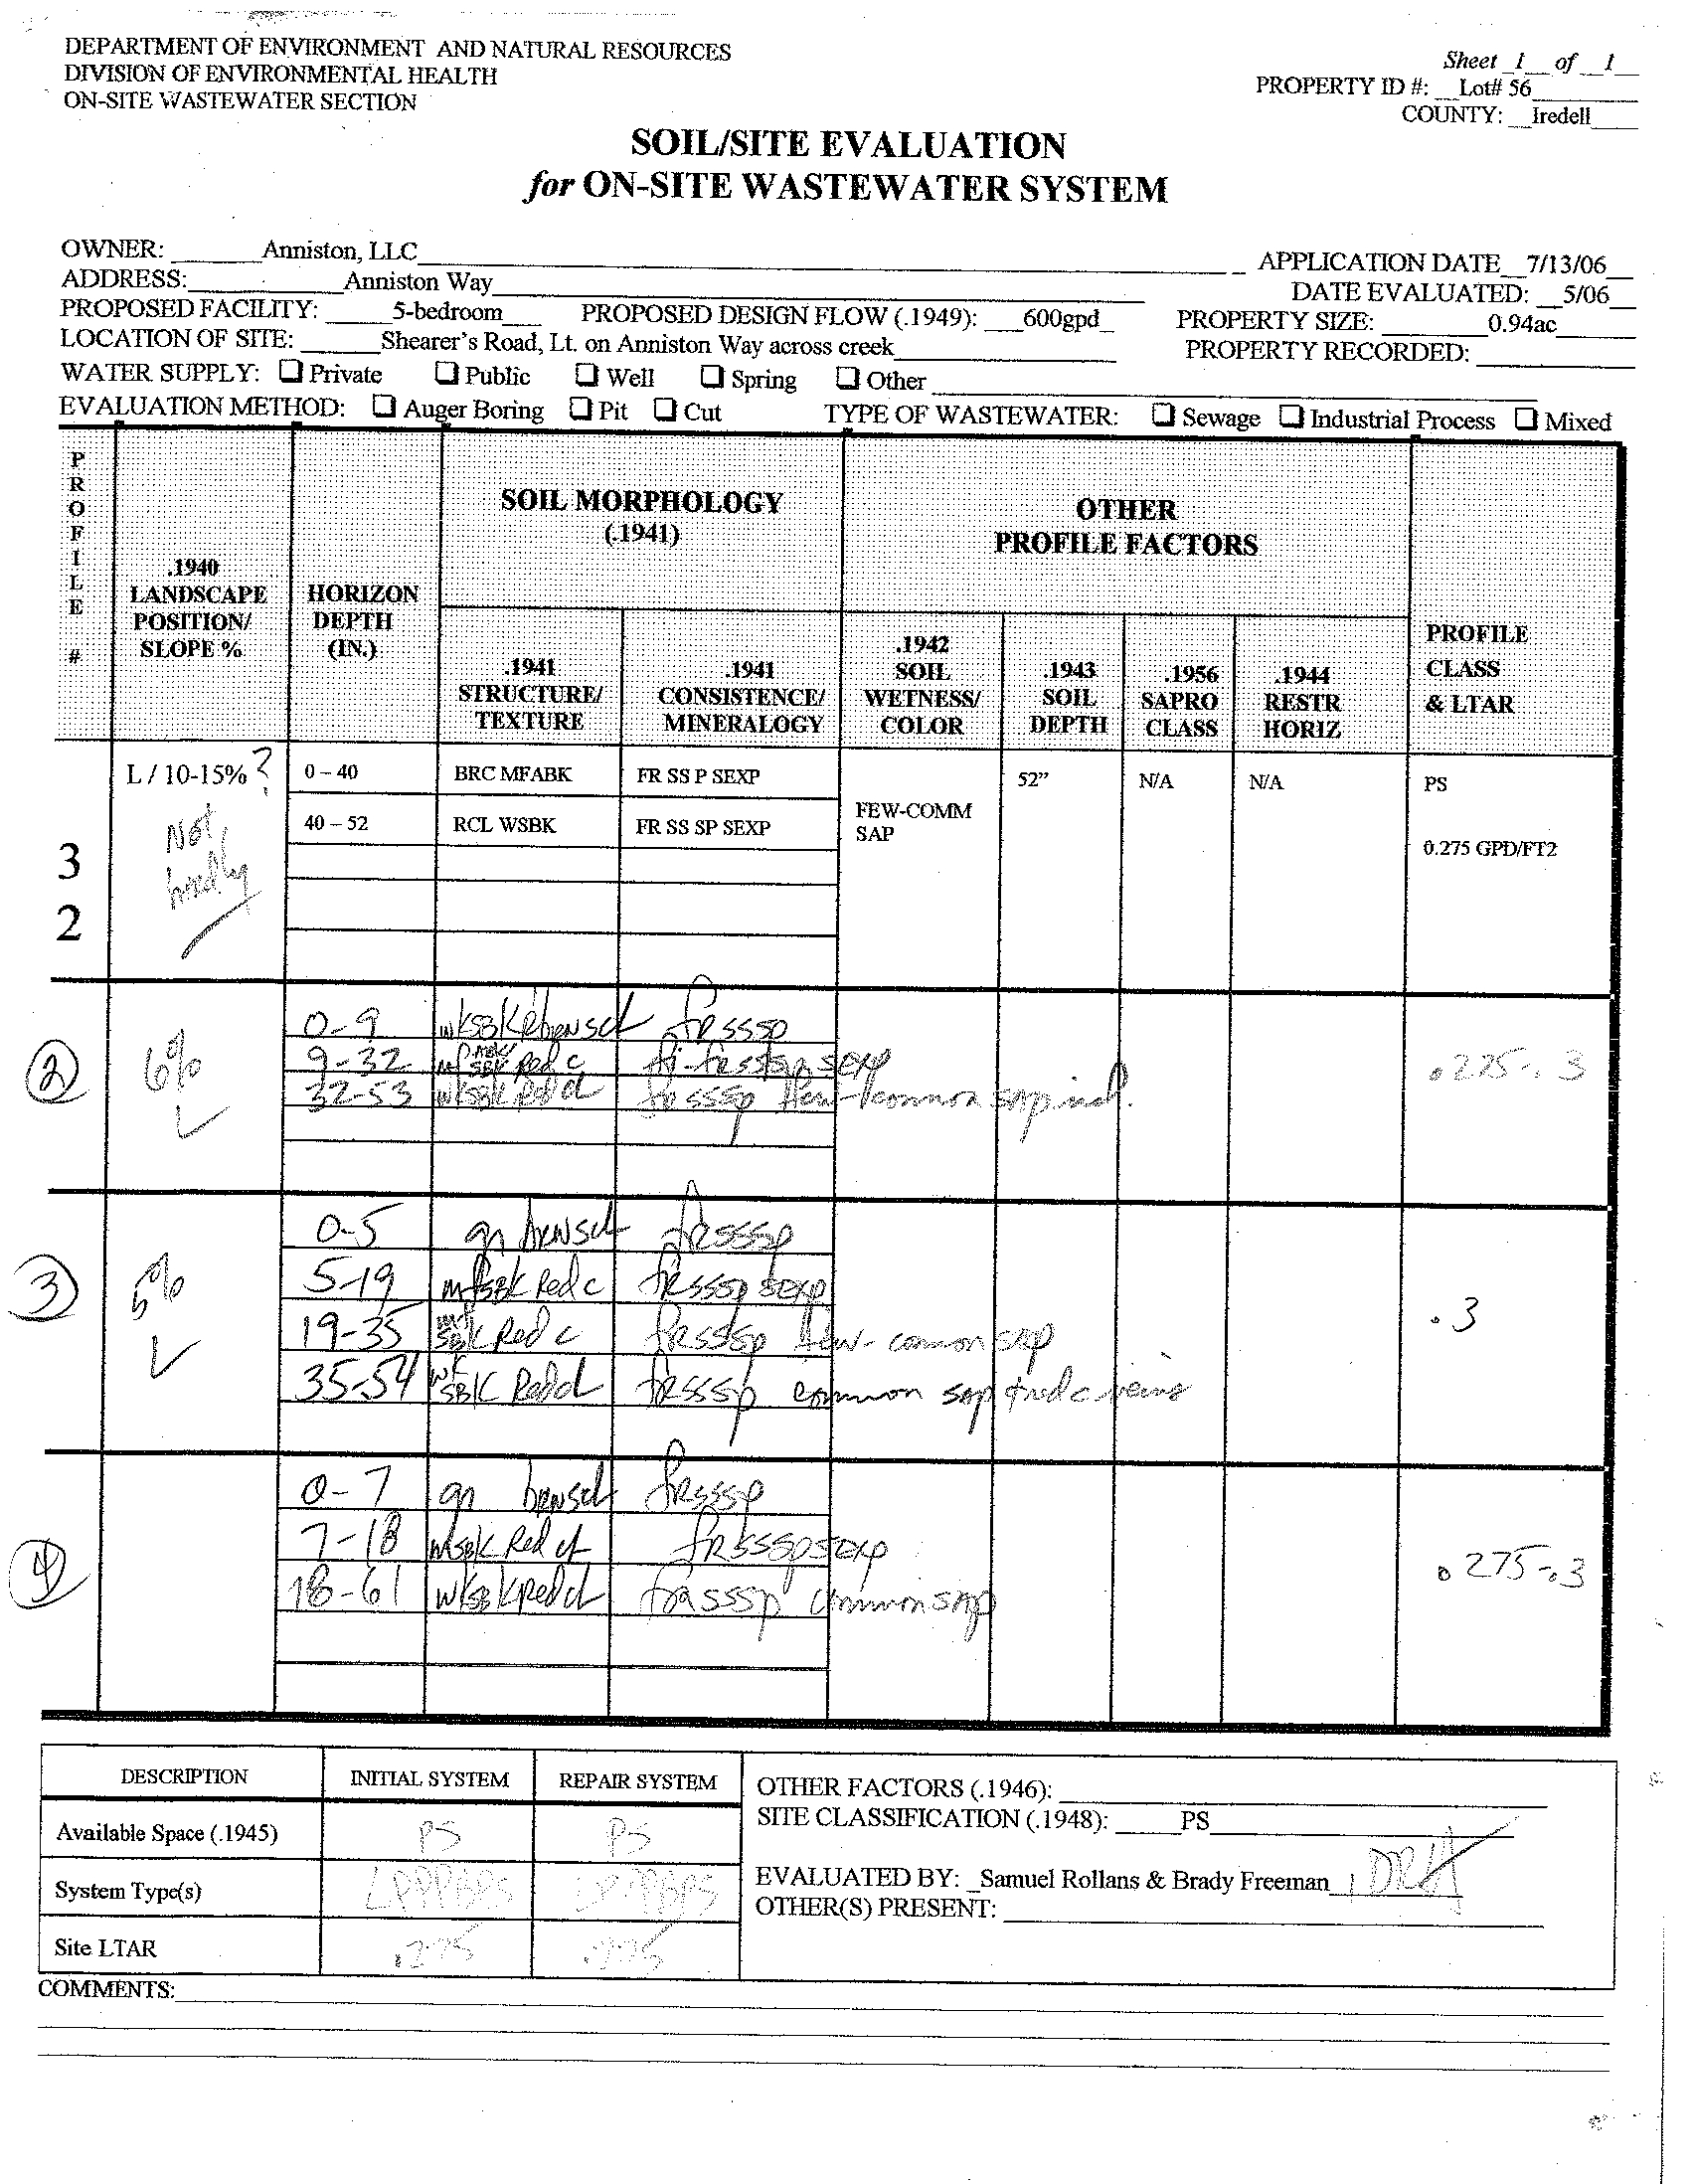 DEPARTMENT OF ENVIRONMENT AND NATURAL RESOURCES
DIVISION OF ENVIRONMENTAL HEALTH
ON-SITE WASTEWATER SECTION
Sheet 1 of 1
PROPERTY ID #: Lot# 56
COUNTY: Iredell
SOIL/SITE EVALUATION
for ON-SITE WASTEWATER SYSTEM
OWNER: Anniston, LLC
APPLICATION DATE 7/13/06
ADDRESS: Anniston Way
DATE EVALUATED: 5/06
PROPOSED FACILITY: 5-bedroom PROPOSED DESIGN FLOW (.1949): 600gpd PROPERTY SIZE: 0.94ac
LOCATION OF SITE: Shearer's Road, Lt. on Anniston Way across creek PROPERTY RECORDED:
WATER SUPPLY: ❑ Private ❑ Public ❑ Well ❑ Spring ❑ Other
EVALUATION METHOD: ❑ Auger Boring ❑ Pit ❑ Cut TYPE OF WASTEWATER: ❑ Sewage ❑ Industrial Process ❑ Mixed
PROFILE #
.1940 LANDSCAPE POSITION/ SLOPE %
HORIZON DEPTH (IN.)
SOIL MORPHOLOGY (.1941)
.1941 STRUCTURE/ TEXTURE
.1941 CONSISTENCE/ MINERALOGY
OTHER PROFILE FACTORS
.1942 SOIL WETNESS/ COLOR
.1943 SOIL DEPTH
.1956 SAPRO CLASS
.1944 RESTR HORIZ
PROFILE CLASS & LTAR
3
2
L / 10-15% ?
Not
0 – 40 BRC MFABK FR SS P SEXP
40 – 52 RCL WSBK FR SS SP SEXP
FEW-COMM SAP
52" N/A N/A PS
0.275 GPD/FT2
2 6% L
0-9 frsssp
9-32 Red c fi-frsssp sexp
32-53 wksbk Red cl frsssp few-common sap incl.
.275-.3
3 5% L
0-5 gr brnscl frsssp
5-19 mfsbk Red c frsssp sexp
19-35 sbk Red c frsssp few-common sap
35-54 wk sbk Red cl frsssp common sap red c veins
.3
4
0-7 gr brnscl frsssp
7-18 msbk Red cl frsssp sexp
18-61 wksbk red cl frsssp common sap
.275-.3
DESCRIPTION INITIAL SYSTEM REPAIR SYSTEM
Available Space (.1945) PS PS
System Type(s)
Site LTAR .275 .275
OTHER FACTORS (.1946):
SITE CLASSIFICATION (.1948): PS
EVALUATED BY: Samuel Rollans & Brady Freeman
OTHER(S) PRESENT:
COMMENTS: